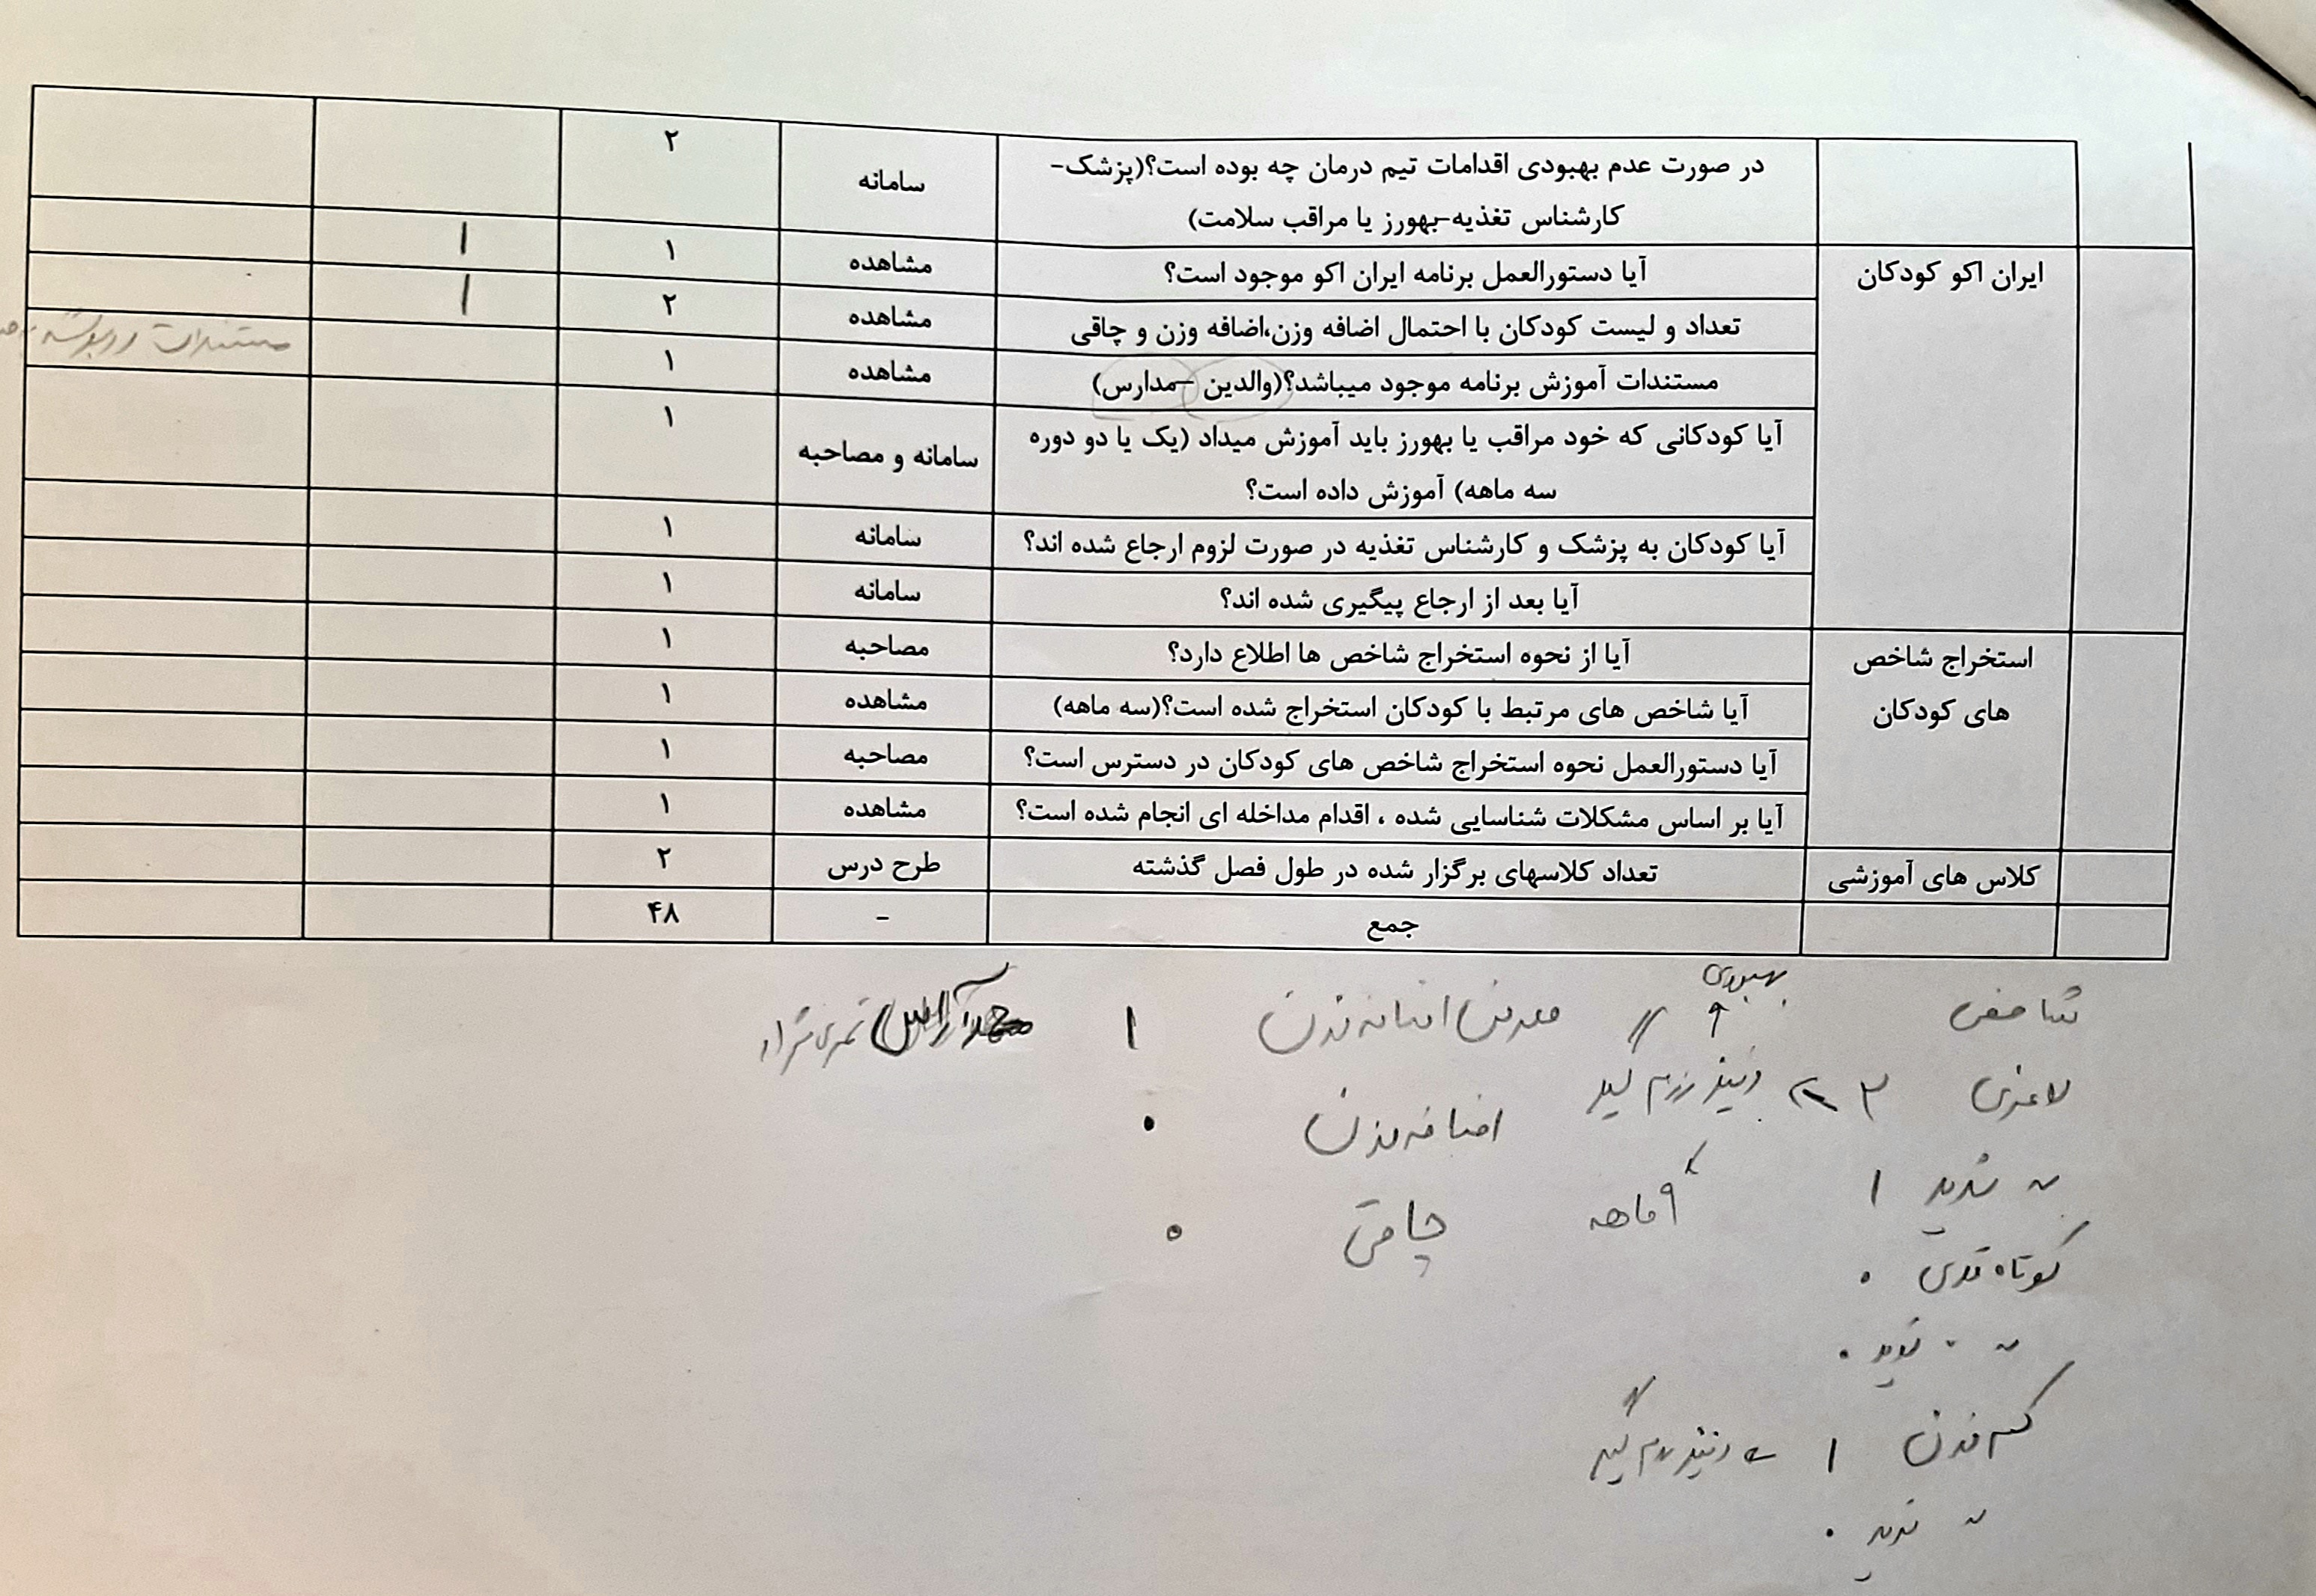 در صورت عدم بهبودی اقدامات تیم درمان چه بوده است؟(پزشک- سامانه ۲
کارشناس تغذیه-بهورز یا مراقب سلامت)
ایران اکو کودکان آیا دستورالعمل برنامه ایران اکو موجود است؟ مشاهده ۱ ۱
تعداد و لیست کودکان با احتمال اضافه وزن،اضافه وزن و چاقی مشاهده ۲ ۱
مستندات آموزش برنامه موجود میباشد؟(والدین -مدارس) مشاهده ۱ مستندات
آیا کودکانی که خود مراقب یا بهورز باید آموزش میداد (یک یا دو دوره سامانه و مصاحبه ۱
سه ماهه) آموزش داده است؟
آیا کودکان به پزشک و کارشناس تغذیه در صورت لزوم ارجاع شده اند؟ سامانه ۱
آیا بعد از ارجاع پیگیری شده اند؟ سامانه ۱
استخراج شاخص آیا از نحوه استخراج شاخص ها اطلاع دارد؟ مصاحبه ۱
های کودکان آیا شاخص های مرتبط با کودکان استخراج شده است؟(سه ماهه) مشاهده ۱
آیا دستورالعمل نحوه استخراج شاخص های کودکان در دسترس است؟ مصاحبه ۱
آیا بر اساس مشکلات شناسایی شده ، اقدام مداخله ای انجام شده است؟ مشاهده ۱
کلاس های آموزشی تعداد کلاسهای برگزار شده در طول فصل گذشته طرح درس ۲
جمع - ۴۸
بهبودی
شاخص اضافه وزن ۱
لاغری ۳
اضافه وزن ۰
شدید ۱
۹ ماهه چاقی ۰
کوتاه قدی ۰
شدید ۰
کم وزن ۱
شدید ۰